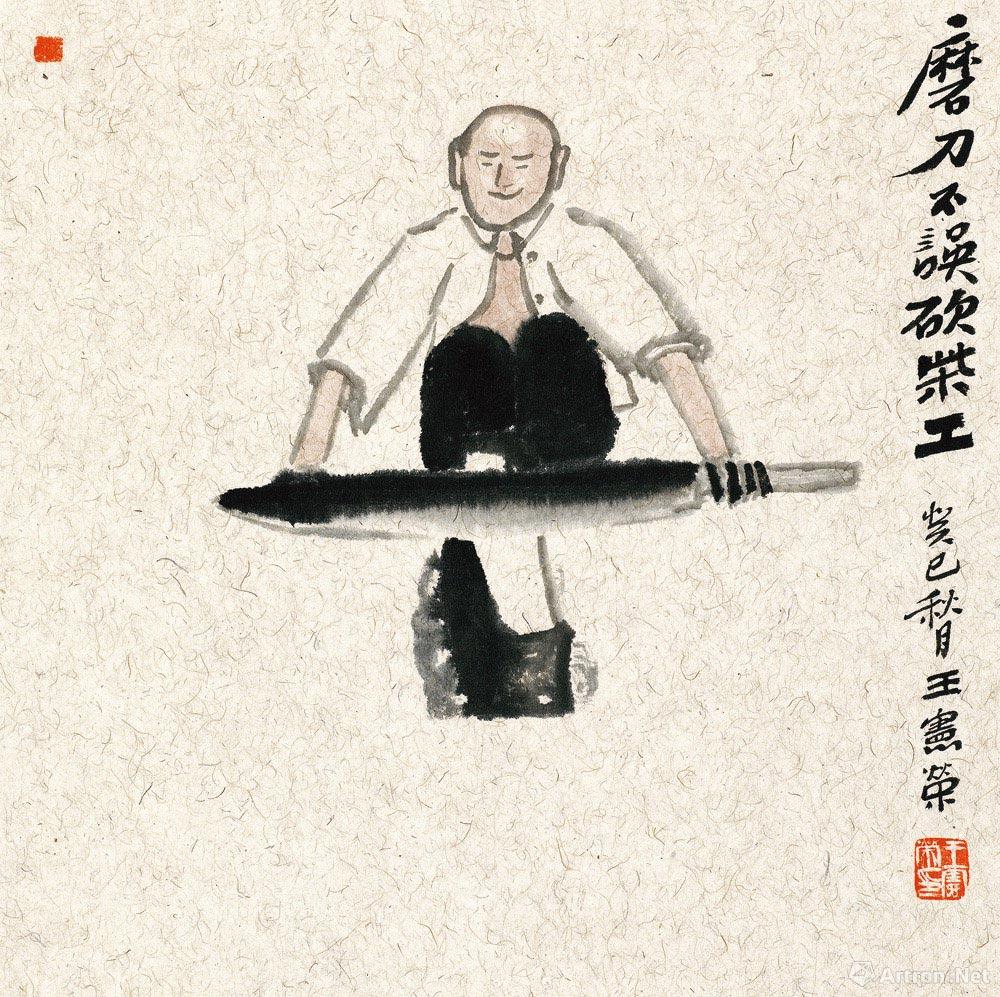 磨刀不誤砍柴工
癸巳秋月王憲榮
Artron.Net